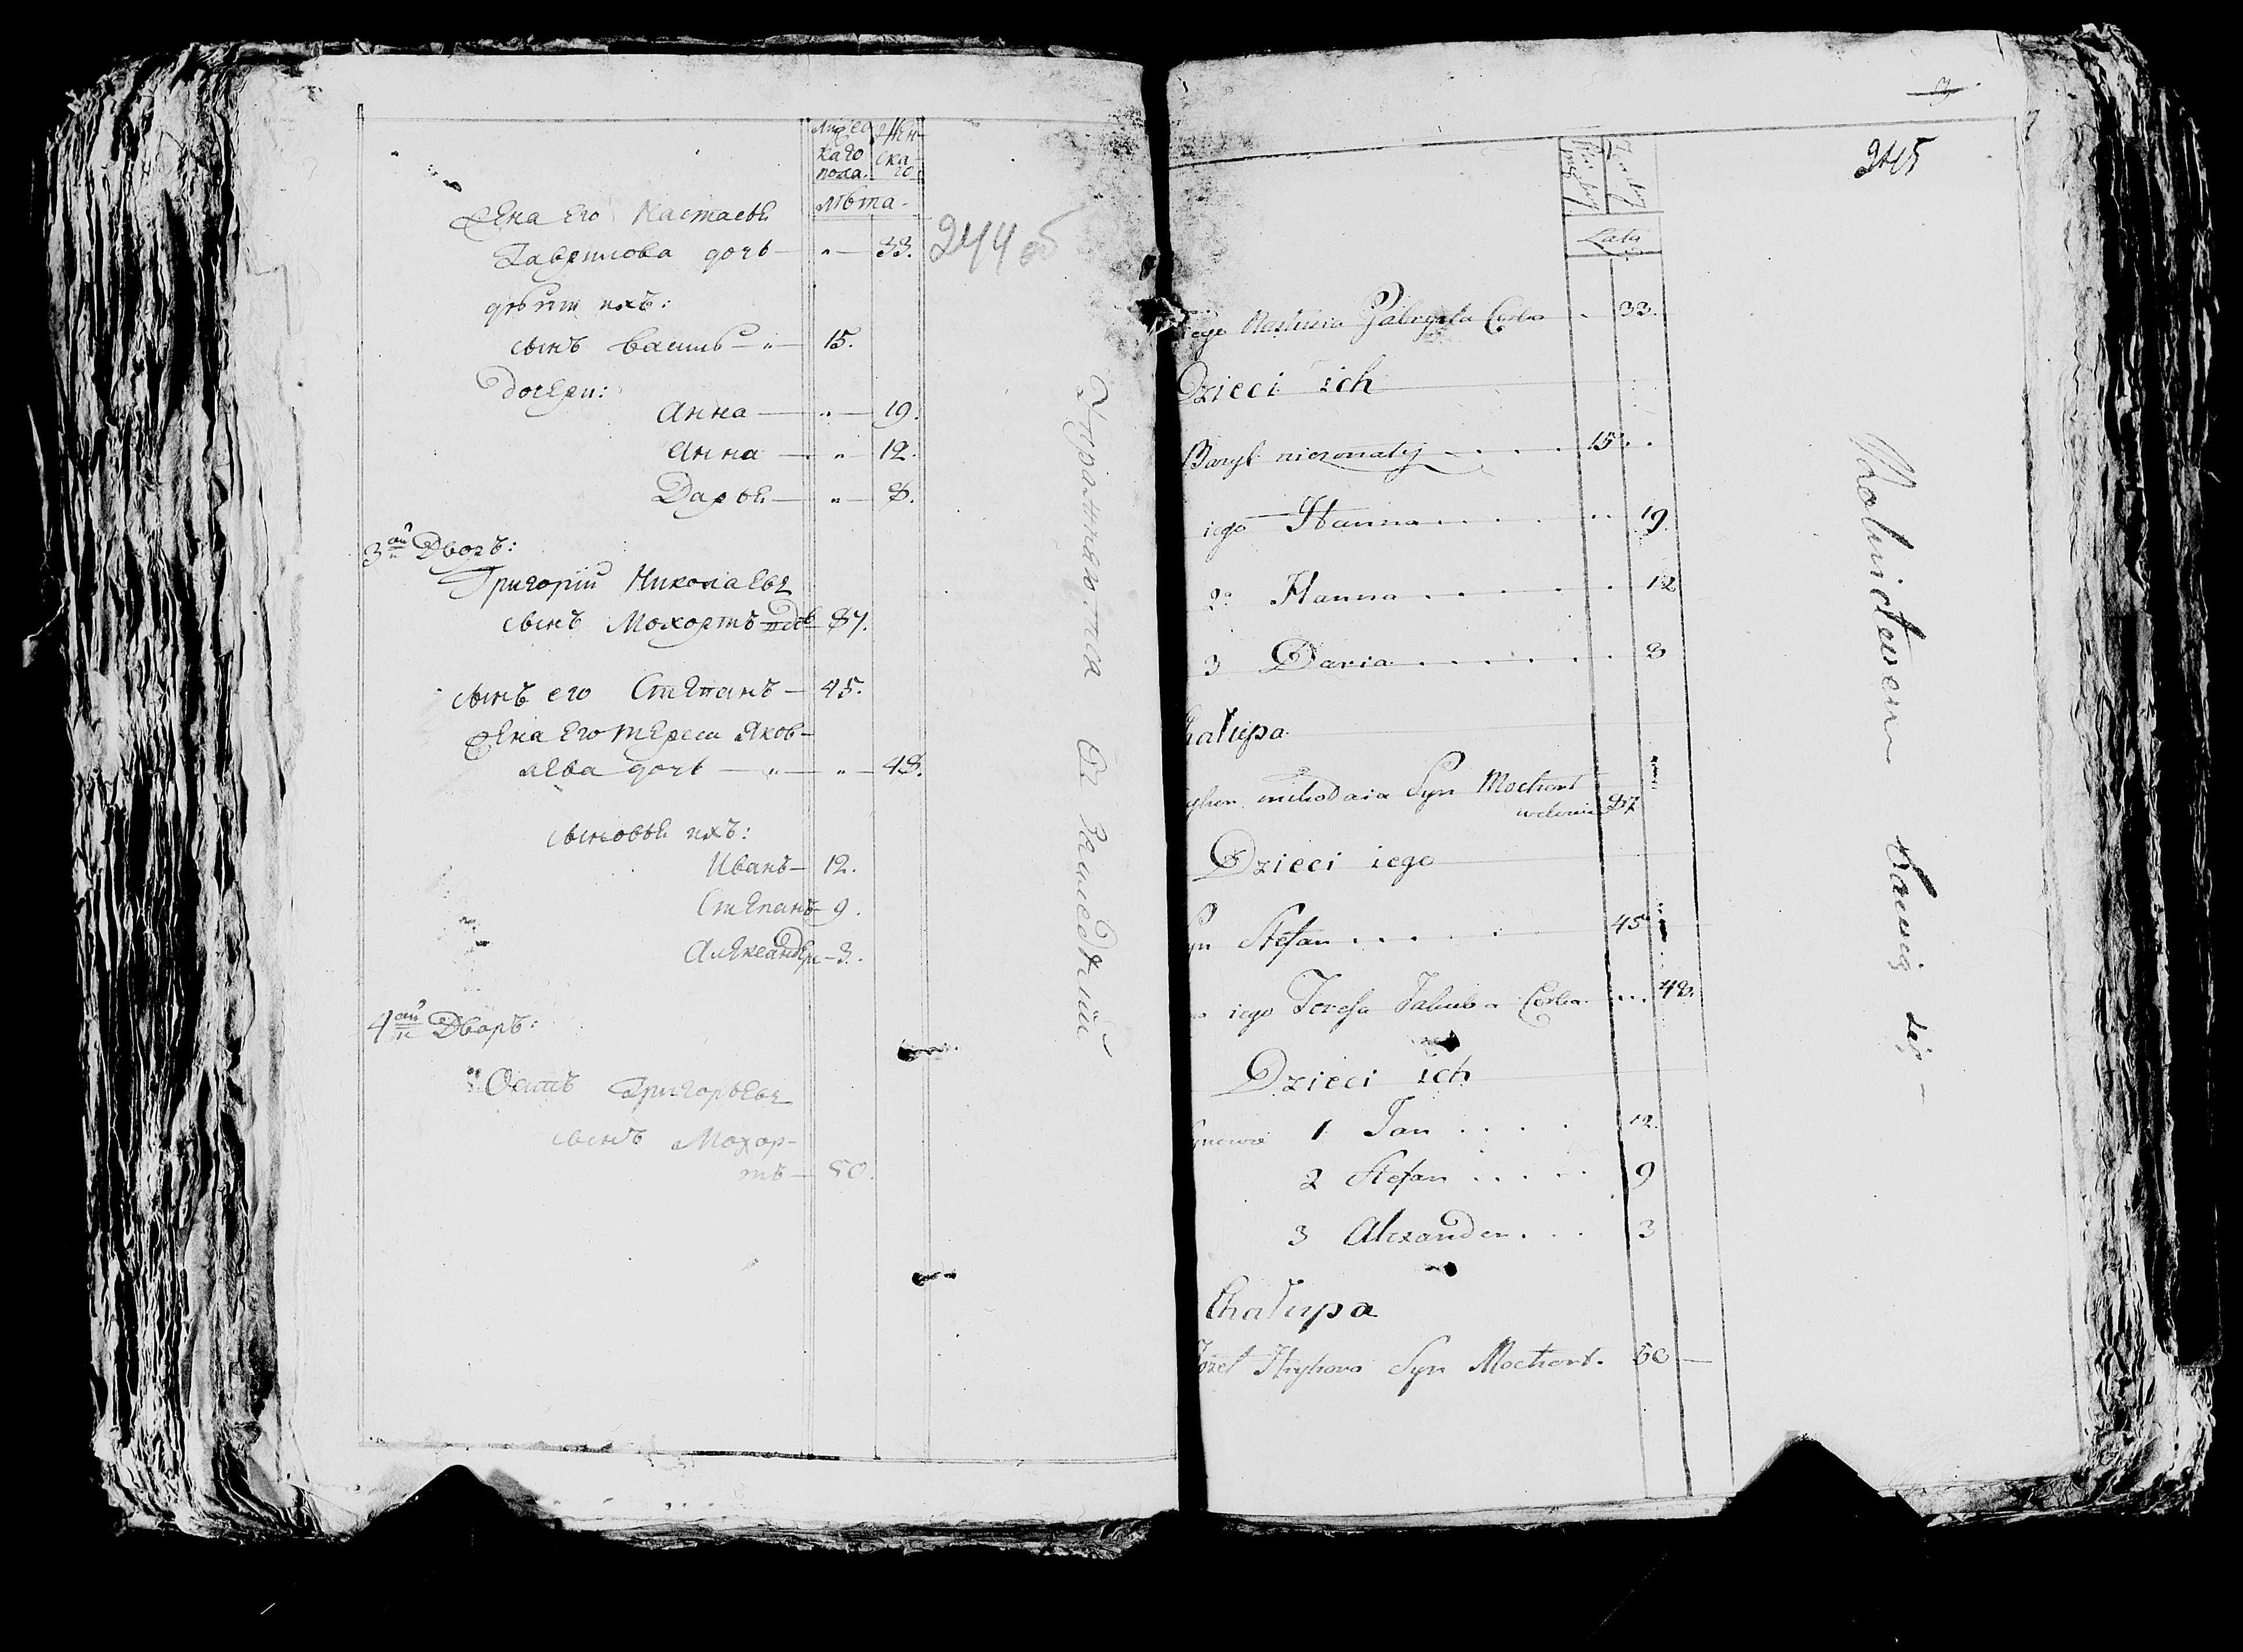 мужескаго пола.
женскаго
лѣта.
244 об
Жена его Настасья
Гаврилова дочь — " — 33.
дѣти ихъ:
сынъ Василь — " — 15.
Дочери:
Анна — " — 19.
Анна — " — 12.
Дарья — " — 8.
3ай Дворъ:
Григорій Николаевъ
сынъ Мохортъ вдовъ 87.
сынъ его Степанъ — 45.
Жена его Тереса Яков-
лева дочь — " — " — 48.
сыновья ихъ:
Иванъ — 12.
Степанъ — 9.
Александръ — 3.
4ай Дворъ:
Осипъ Григорьевъ
сынъ Мохор-
тъ — 50.
Упражняется въ
245
Lata
iego Nastusia Gabryela Corka . 33.
Dzieci ich
Bazyl niezonaty . . . . 15 . .
iego Hanna . . . . . . 19.
2o Hanna . . . . . . 12
3 Daria . . . . . . 8
hałupa
mikołaia Syn Mochort
87
Dzieci iego
yn Stefan . . . . . 45
iego Teresa Jakuba Corka . . . 48.
Dzieci ich
1 Jan . . . . 12.
2 Stefan . . . . . 9
3 Alexander . . . 3
Chałupa
Józef Hryhora Syn Mochort. 50 —
Rolnictwem bawią się —